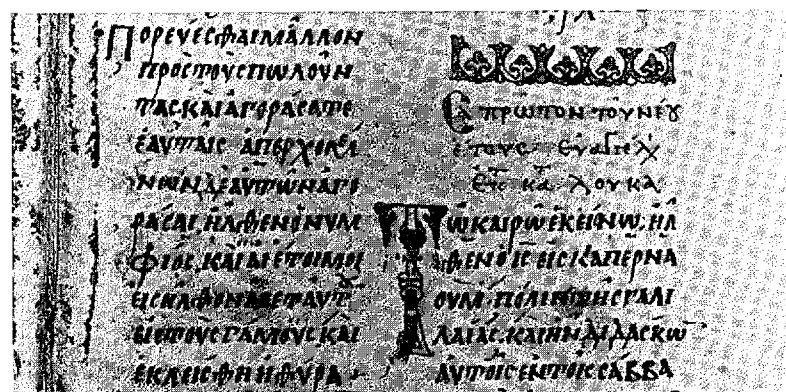 ΠΟΡΕΥΕΣΘΑΙ ΜΑΛΛΟΝ
ΠΡΟΣ ΤΟΥΣ ΠΩΛΟΥΝ
ΤΑΣ, ΚΑΙ ΑΓΟΡΑΣΑΤΕ
ΕΑΥΤΑΙΣ ΑΠΕΡΧΟΜΕ
ΝΩΝ ΔΕ ΑΥΤΩΝ ΑΓΟ
ΡΑΣΑΙ ΗΛΘΕΝ Ο ΝΥΜ
ΦΙΟΣ, ΚΑΙ ΑΙ ΕΤΟΙΜΟΙ
ΕΙΣΗΛΘΟΝ ΜΕΤ ΑΥΤ
ΕΙΣ ΤΟΥΣ ΓΑΜΟΥΣ ΚΑΙ
ΕΚΛΕΙΣΘΗ Η ΘΥΡΑ
ΠΡΩΤΟΝ ΤΟΥ ΝΕΟΥ
ΕΤΟΥΣ ΕΥΑΓΓΕΛ
ΕΚ ΚΑΤΑ ΛΟΥΚΑ
ΤΩ ΚΑΙΡΩ ΕΚΕΙΝΩ, ΗΛ
ΘΕΝ Ο ΙΣ ΕΙΣ ΚΑΠΕΡΝΑ
ΟΥΜ ΠΟΛΙΝ ΤΗΣ ΓΑΛΙ
ΛΑΙΑΣ, ΚΑΙ ΗΝ ΔΙΔΑΣΚΩ
ΑΥΤΟΙΣ ΕΝ ΤΟΙΣ ΣΑΒΒΑ